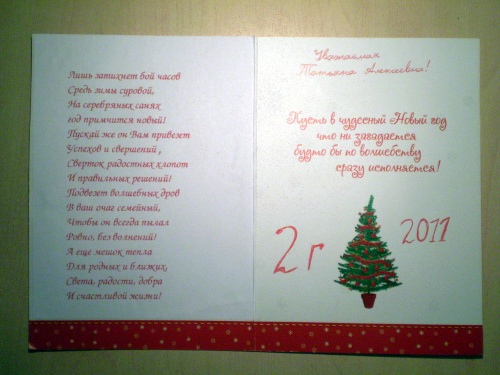 Лишь затихнет бой часов
Средь зимы суровой,
На серебряных санях
год примчится новый!
Пускай же он Вам привезет
Успехов и свершений ,
Сверток радостных хлопот
И правильных решений!
Подвезет волшебных дров
В ваш очаг семейный,
Чтобы он всегда пылал
Ровно, без волнений!
А еще мешок тепла
Для родных и близких,
Света, радости, добра
И счастливой жизни!
Уважаемая
Татьяна Алексеевна!
Пусть в чудесный Новый год
что ни загадается
будто бы по волшебству
сразу исполняется!
2 г
2011